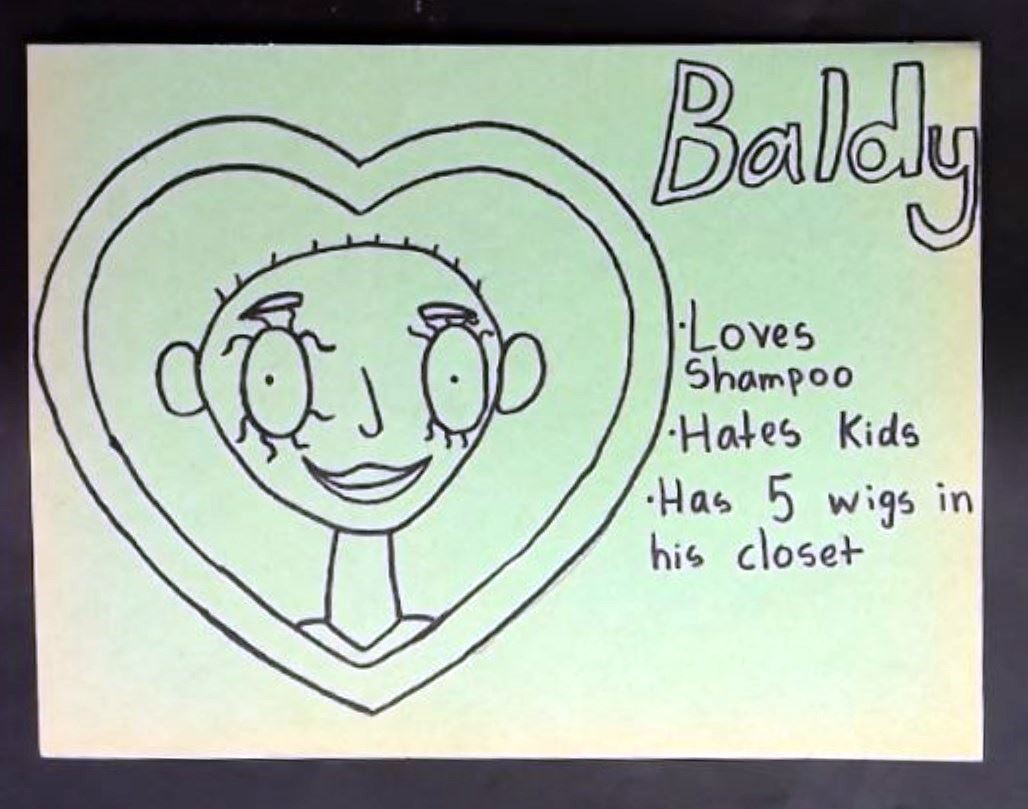 Baldy
·Loves
Shampoo
·Hates Kids
·Has 5 wigs in
his closet